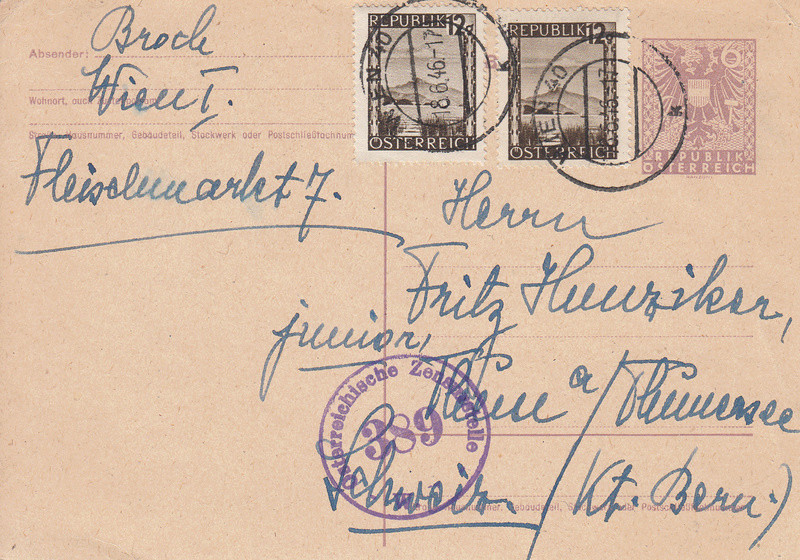 Absender: Broch
Wien I.
Wohnort, auch
Straße, Hausnummer, Gebäudeteil, Stockwerk oder Postschließfachnum
Fleischmarkt 7.
REPUBLIK 12g
ÖSTERREICH
REPUBLIK 12g
ÖSTERREICH
WIEN 40
18.6.46-17
WIEN 40
6
REPUBLIK
ÖSTERREICH
Herrn
Fritz Hunziker,
junior,
Thun a/Thunersee
Schweiz. (Kt. Bern.)
Österreichische Zensurstelle
389
Hausnummer, Gebäudeteil, Stockwerk oder Postschließfachnummer